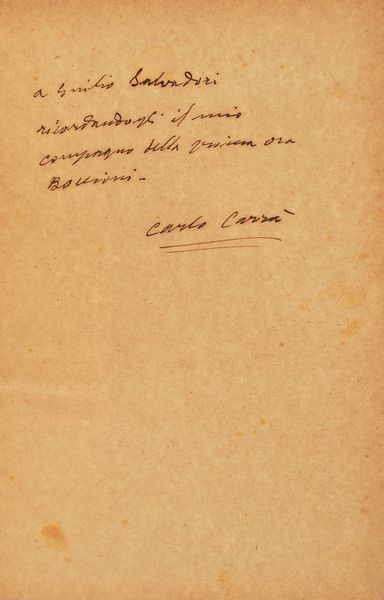 a Guilio Salvadori
ricordandogli il mio
compagno della prima ora
Boccioni -
Carlo Carrà